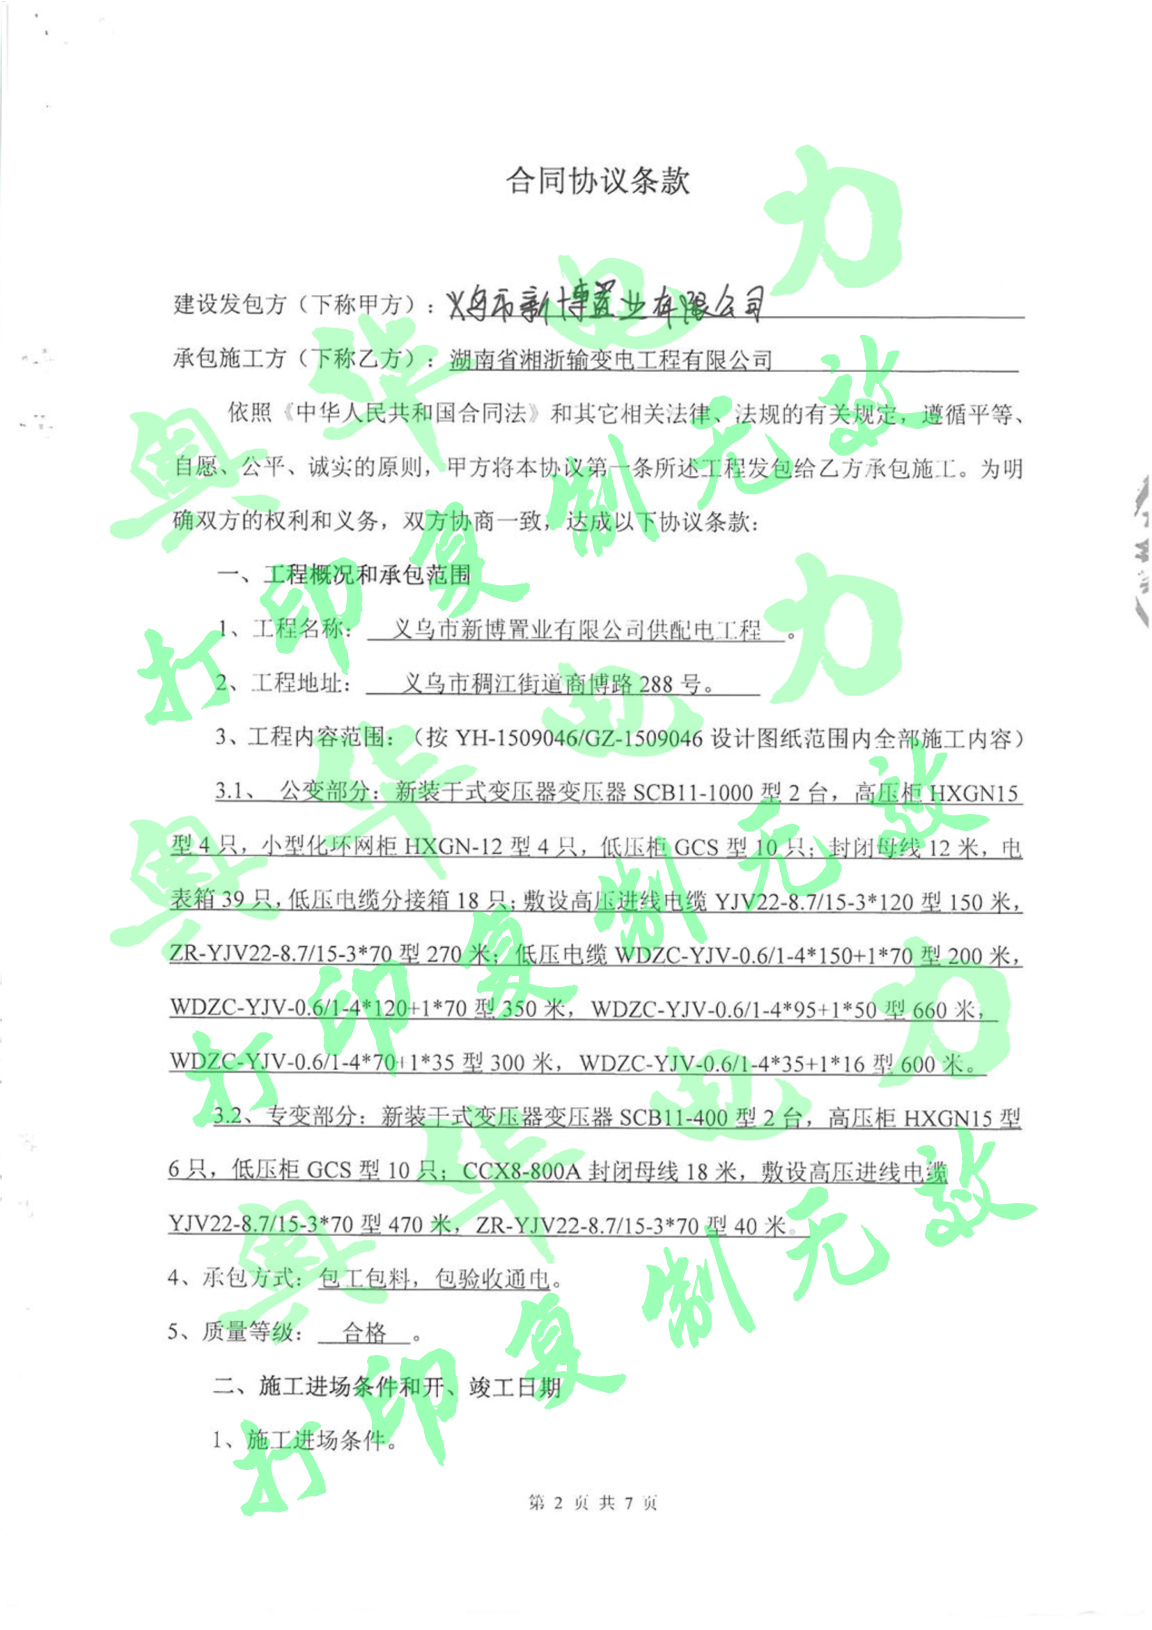 合同协议条款
建设发包方（下称甲方）：义乌市新博置业有限公司
承包施工方（下称乙方）：湖南省湘浙输变电工程有限公司
依照《中华人民共和国合同法》和其它相关法律、法规的有关规定，遵循平等、
自愿、公平、诚实的原则，甲方将本协议第一条所述工程发包给乙方承包施工。为明
确双方的权利和义务，双方协商一致，达成以下协议条款：
一、工程概况和承包范围
1、工程名称：义乌市新博置业有限公司供配电工程。
2、工程地址：义乌市稠江街道商博路 288 号。
3、工程内容范围：（按 YH-1509046/GZ-1509046 设计图纸范围内全部施工内容）
3.1、 公变部分：新装干式变压器变压器 SCB11-1000 型 2 台，高压柜 HXGN15
型 4 只，小型化环网柜 HXGN-12 型 4 只，低压柜 GCS 型 10 只；封闭母线 12 米，电
表箱 39 只，低压电缆分接箱 18 只；敷设高压进线电缆 YJV22-8.7/15-3*120 型 150 米，
ZR-YJV22-8.7/15-3*70 型 270 米；低压电缆 WDZC-YJV-0.6/1-4*150+1*70 型 200 米，
WDZC-YJV-0.6/1-4*120+1*70 型 350 米，WDZC-YJV-0.6/1-4*95+1*50 型 660 米，
WDZC-YJV-0.6/1-4*70+1*35 型 300 米，WDZC-YJV-0.6/1-4*35+1*16 型 600 米。
3.2、专变部分：新装干式变压器变压器 SCB11-400 型 2 台，高压柜 HXGN15 型
6 只，低压柜 GCS 型 10 只；CCX8-800A 封闭母线 18 米，敷设高压进线电缆
YJV22-8.7/15-3*70 型 470 米，ZR-YJV22-8.7/15-3*70 型 40 米。
4、承包方式：包工包料，包验收通电。
5、质量等级：合格。
二、施工进场条件和开、竣工日期
1、施工进场条件。
第 2 页 共 7 页
奥华电力
打印复制无效
奥华电力
打印复制无效
奥华电力
打印复制无效